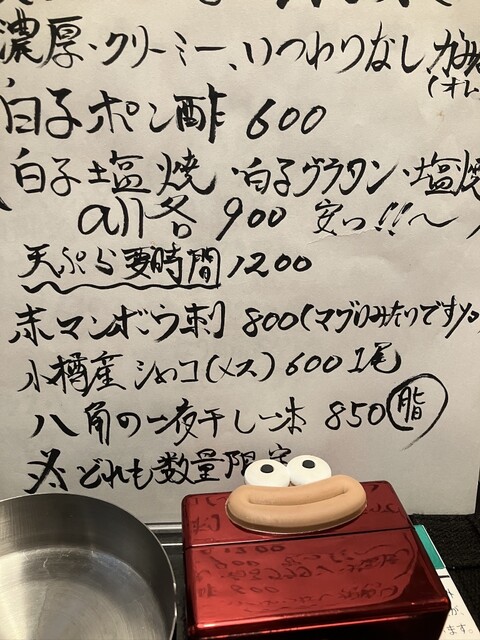 濃厚・クリーミー、いつわりなし
(オレ
白子ポン酢 600
白子塩焼・白子グラタン・塩焼
all各 900 安っ!!〜
天ぷら要時間 1200
赤マンボウ刺 800(マグロみたいです)。
小樽産 シャコ(メス) 600 1尾
八角の一夜干し一本 850 脂
どれも数量限定
ます。